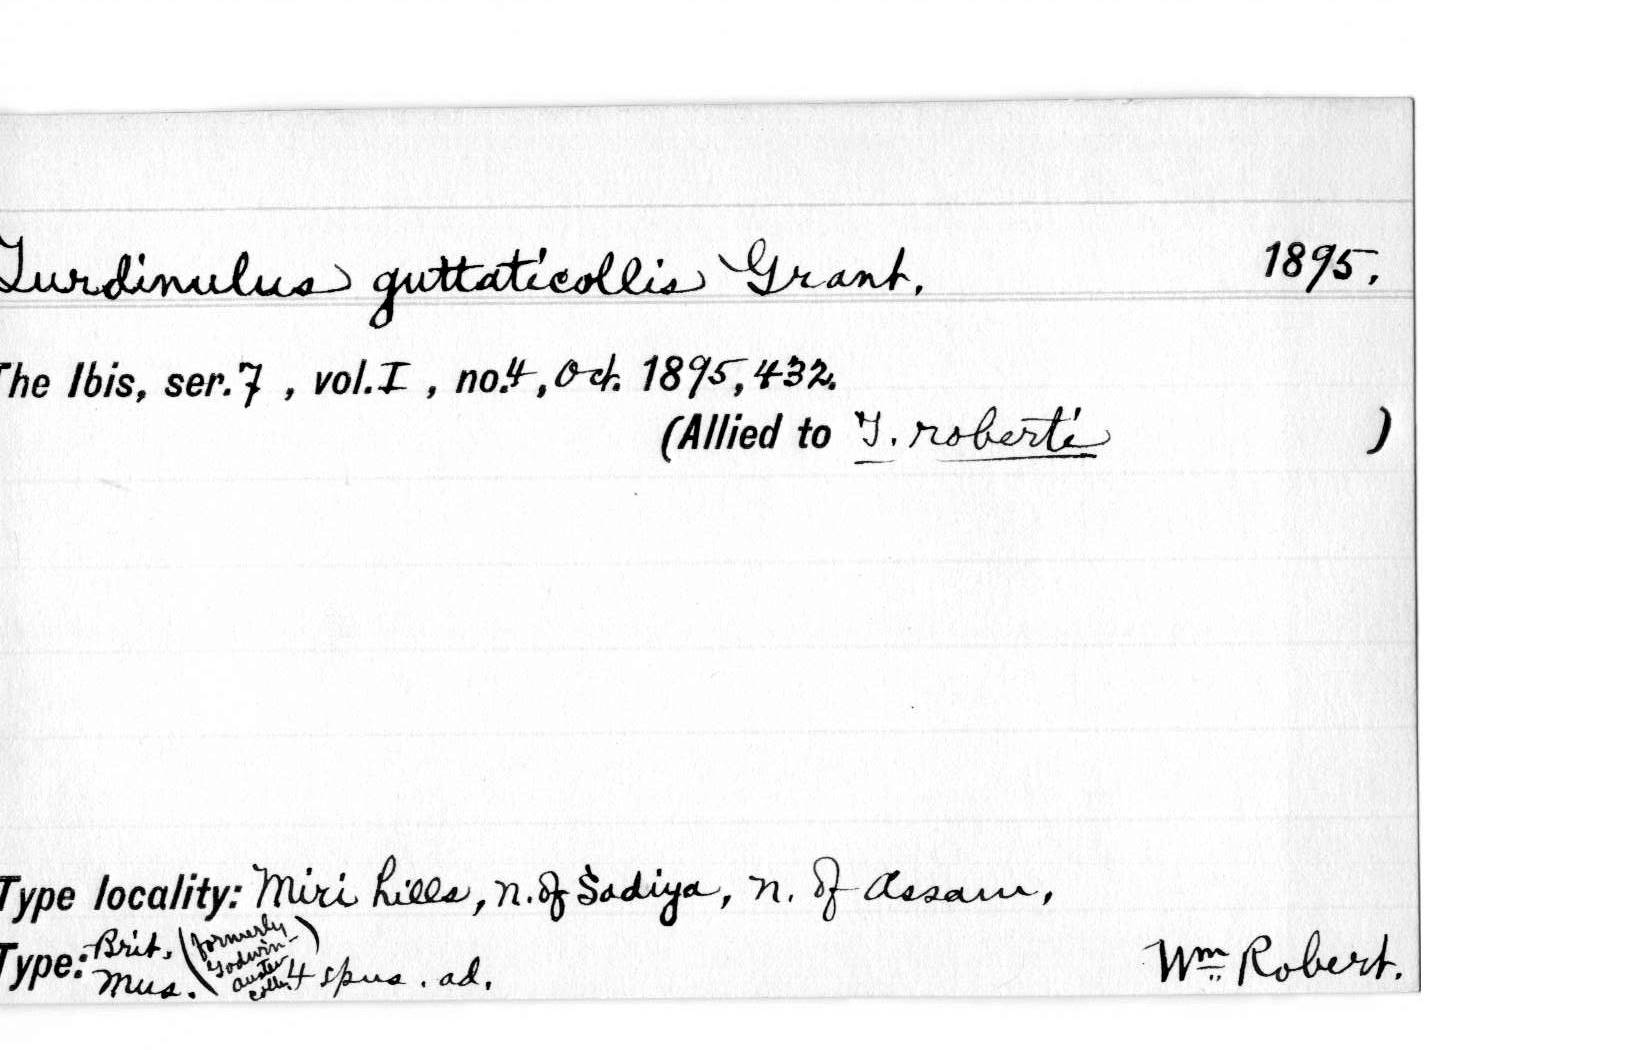 Turdinulus guttaticollis Grant. 1895.
The Ibis, ser. 7, vol. I, no. 4, Oct. 1895, 432.
(Allied to T. roberti )
Type locality: Miri hills, n. of Sadiya, n. of Assam,
Type: Brit. Mus. (formerly Godwin-Austen colln.) 4 spns. ad.
Wm Robert.